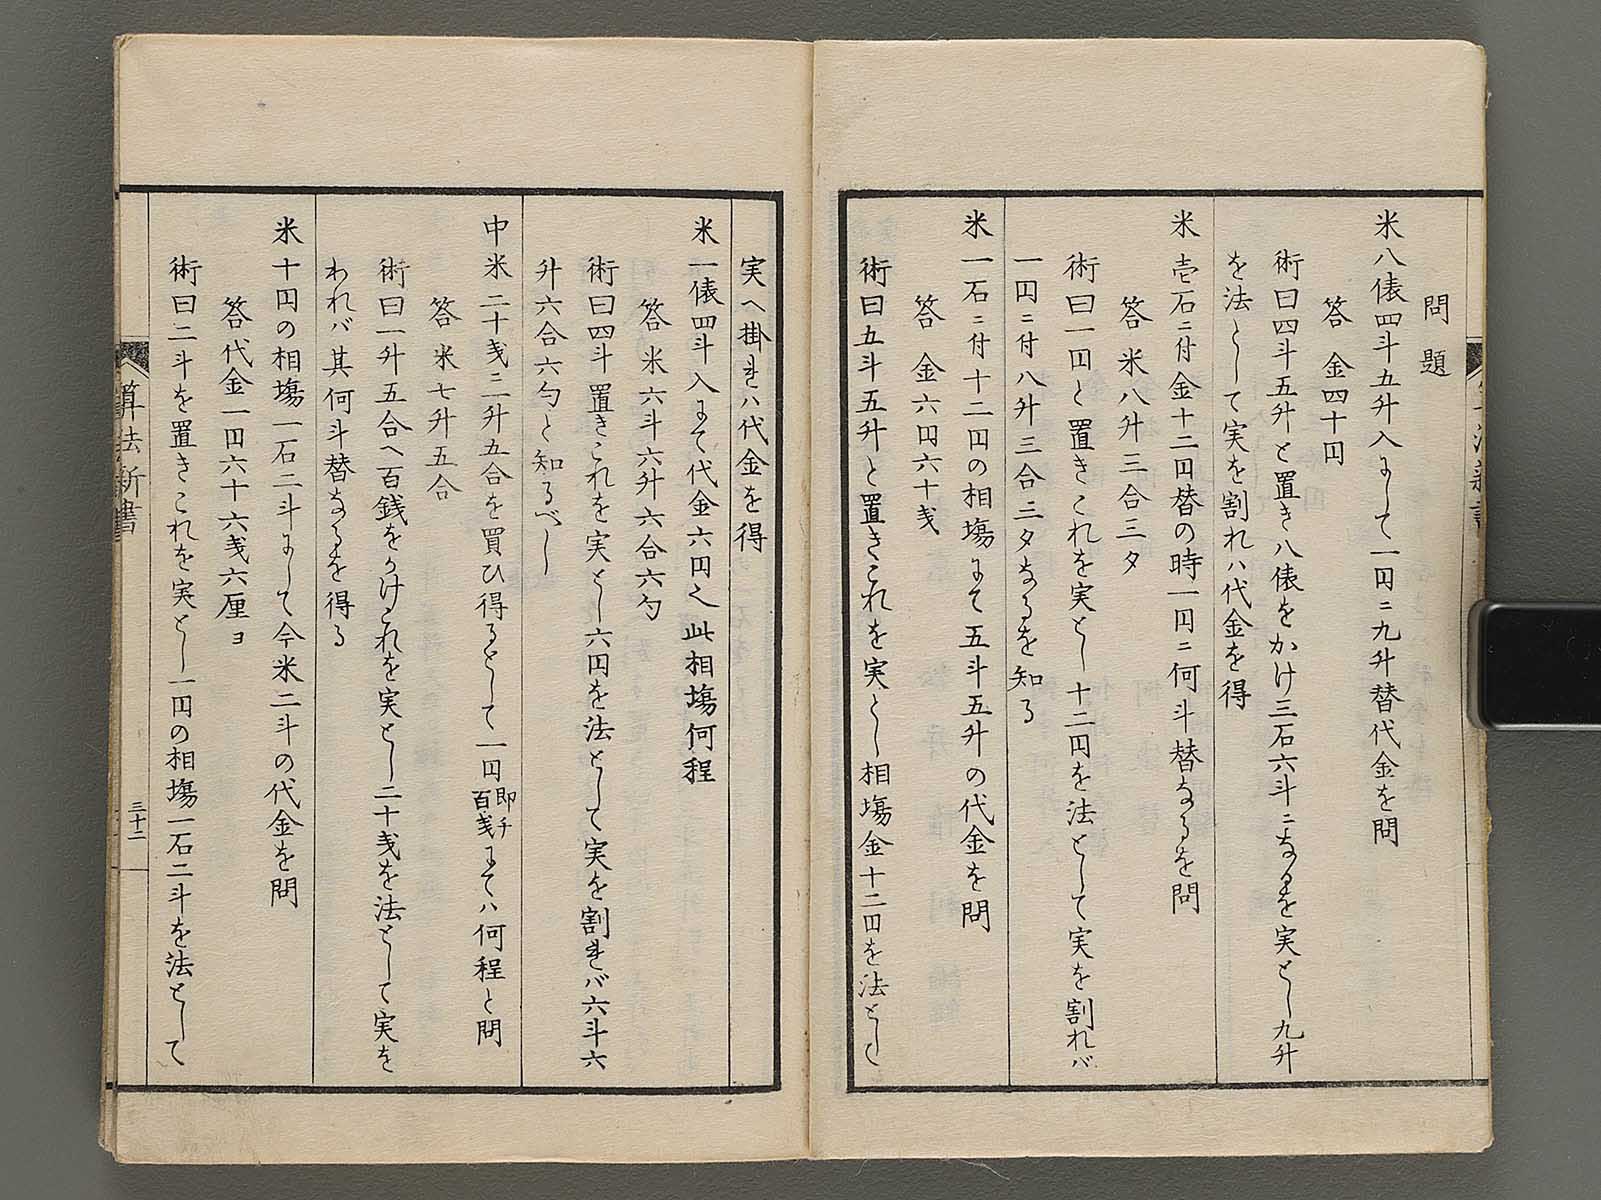 問題
米八俵四斗五升入にして一円ニ九升替代金を問
答 金四十円
術曰四斗五升と置き八俵をかけ三石六斗ニなるを実とし九升
を法として実を割れハ代金を得
米壱石ニ付金十二円替の時一円ニ何斗替なるを問
答 米八升三合三夕
術曰一円と置きこれを実とし十二円を法として実を割れバ
一円ニ付八升三合三夕なるを知る
米一石ニ付十二円の相塲にて五斗五升の代金を問
答 金六円六十戋
術曰五斗五升と置きこれを実とし相塲金十二円を法として
実へ掛れハ代金を得
米一俵四斗入にて代金六円之此相塲何程
答 米六斗六升六合六勺
術曰四斗置きこれを実とし六円を法として実を割れバ六斗六
升六合六勺と知るべし
中米二十戋三升五合を買ひ得るとして一円即チ百戋にてハ何程と問
答 米七升五合
術曰一升五合へ百銭をかけこれを実とし二十戋を法として実を
われバ其何斗替なるを得る
米十円の相塲一石二斗にして今米二斗の代金を問
答代金一円六十六戋六厘ヨ
術曰二斗を置きこれを実とし一円の相塲一石二斗を法として
算法新書
三十二